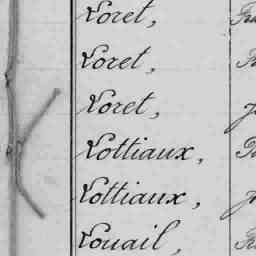 Loret,
Loret,
Loret,
Lottiaux,
Lottiaux,
Louail,